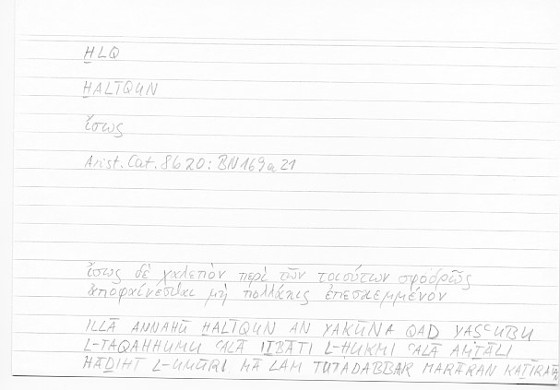 H̱LQ
H̱ALĪQUN
ἴσως
Arist. Cat. 8b 20: BN 169a21
ἴσως δὲ χαλεπὸν περὶ τῶν τοιούτων σφοδρῶς
ἀποφαίνεσθαι μὴ πολλάκις ἐπεσκεμμένον
ILLĀ ANNAHŪ H̱ALĪQUN AN YAKŪNA QAD YAṢʿUBU
L-TAQAḤḤUMU ʿALĀ IṮBĀTI L-ḤUKMI ʿALĀ AMṮĀLI
HĀḎIHĪ L-UMŪRI MĀ LAM TUTADABBAR MARĀRAN